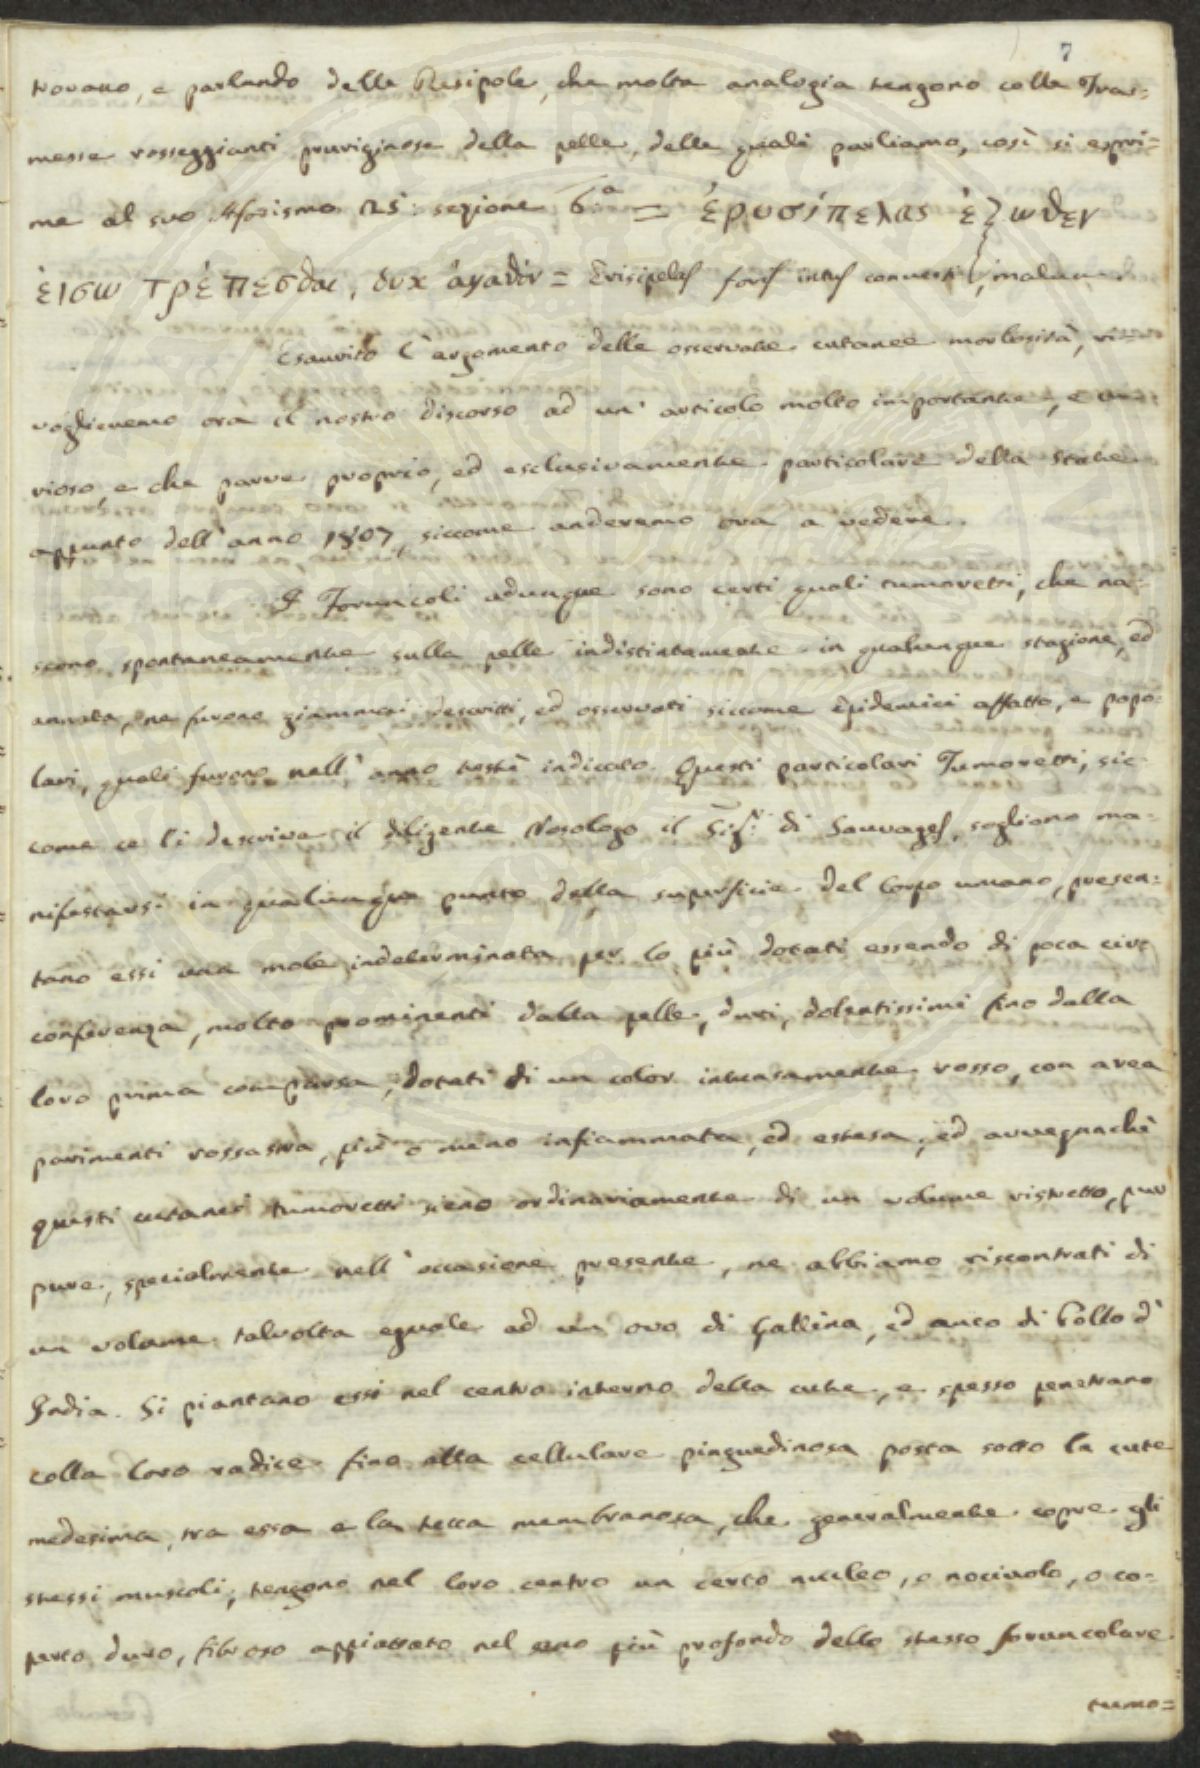 7
trovano, e parlando delle Resipole, che molta analogia tengono colla Tras=
messe rosseggianti pruriginose della pelle, delle quali parliamo, così si espri=
me al suo Aforismo 25 sezione 6.ª = ἐρυσίπελας ἐξωθεν
ἐισω τρέπεσθαι, ουχ ἀγαθὸν = Erisipelas foris intus converti, malum.
Esaurito l'argomento delle osservate cutanee morbosità, ri=
voglieremo ora il nostro discorso ad un' articolo molto importante, e cu=
rioso, e che parve proprio, ed esclusivamente particolare della State
appunto dell'anno 1807, siccome anderemo ora a vedere.
I Foruncoli adunque sono certi quali tumoretti, che na=
scono spontaneamente sulla pelle indistintamente in qualunque stagione, ed
annata, ne furono giammai descritti, ed osservati siccome Epidemici affatto, e popo=
lari, quali furono nell' anno testè indicato. Questi particolari Tumoretti, sic=
come ce li descrive il diligente Nosologo il Sigr. di Sauvages, sogliono ma=
nifestarsi in qualunque punto della superficie del Corpo umano, presen=
tano essi una mole indeterminata per lo più dotati essendo di poca cir=
conferenza, molto prominenti dalla pelle, duri, dolentissimi fino dalla
loro prima comparsa, dotati di un color intensamente rosso, con area
parimenti rossastra, più o meno infiammata, ed estesa, ed avvegnachè
questi cutanei tumoretti sieno ordinariamente di un volume ristretto, pur
pure, specialmente nell' occasione presente, ne abbiamo riscontrati di
un volume talvolta eguale ad un ovo di Gallina, ed anco di Pollo d'
India. Si piantano essi nel centro interno della cute, e spesso penetrano
colla loro radice fino alla cellulare pinguedinosa posta sotto la cute
medesima, tra essa e la tecca membranosa, che generalmente copre gli
stessi muscoli; tengono nel loro centro un certo nucleo, o nocivolo, o co=
perto duro, fibroso appiattato nel seno più profondo dello stesso foruncolare
tumo=